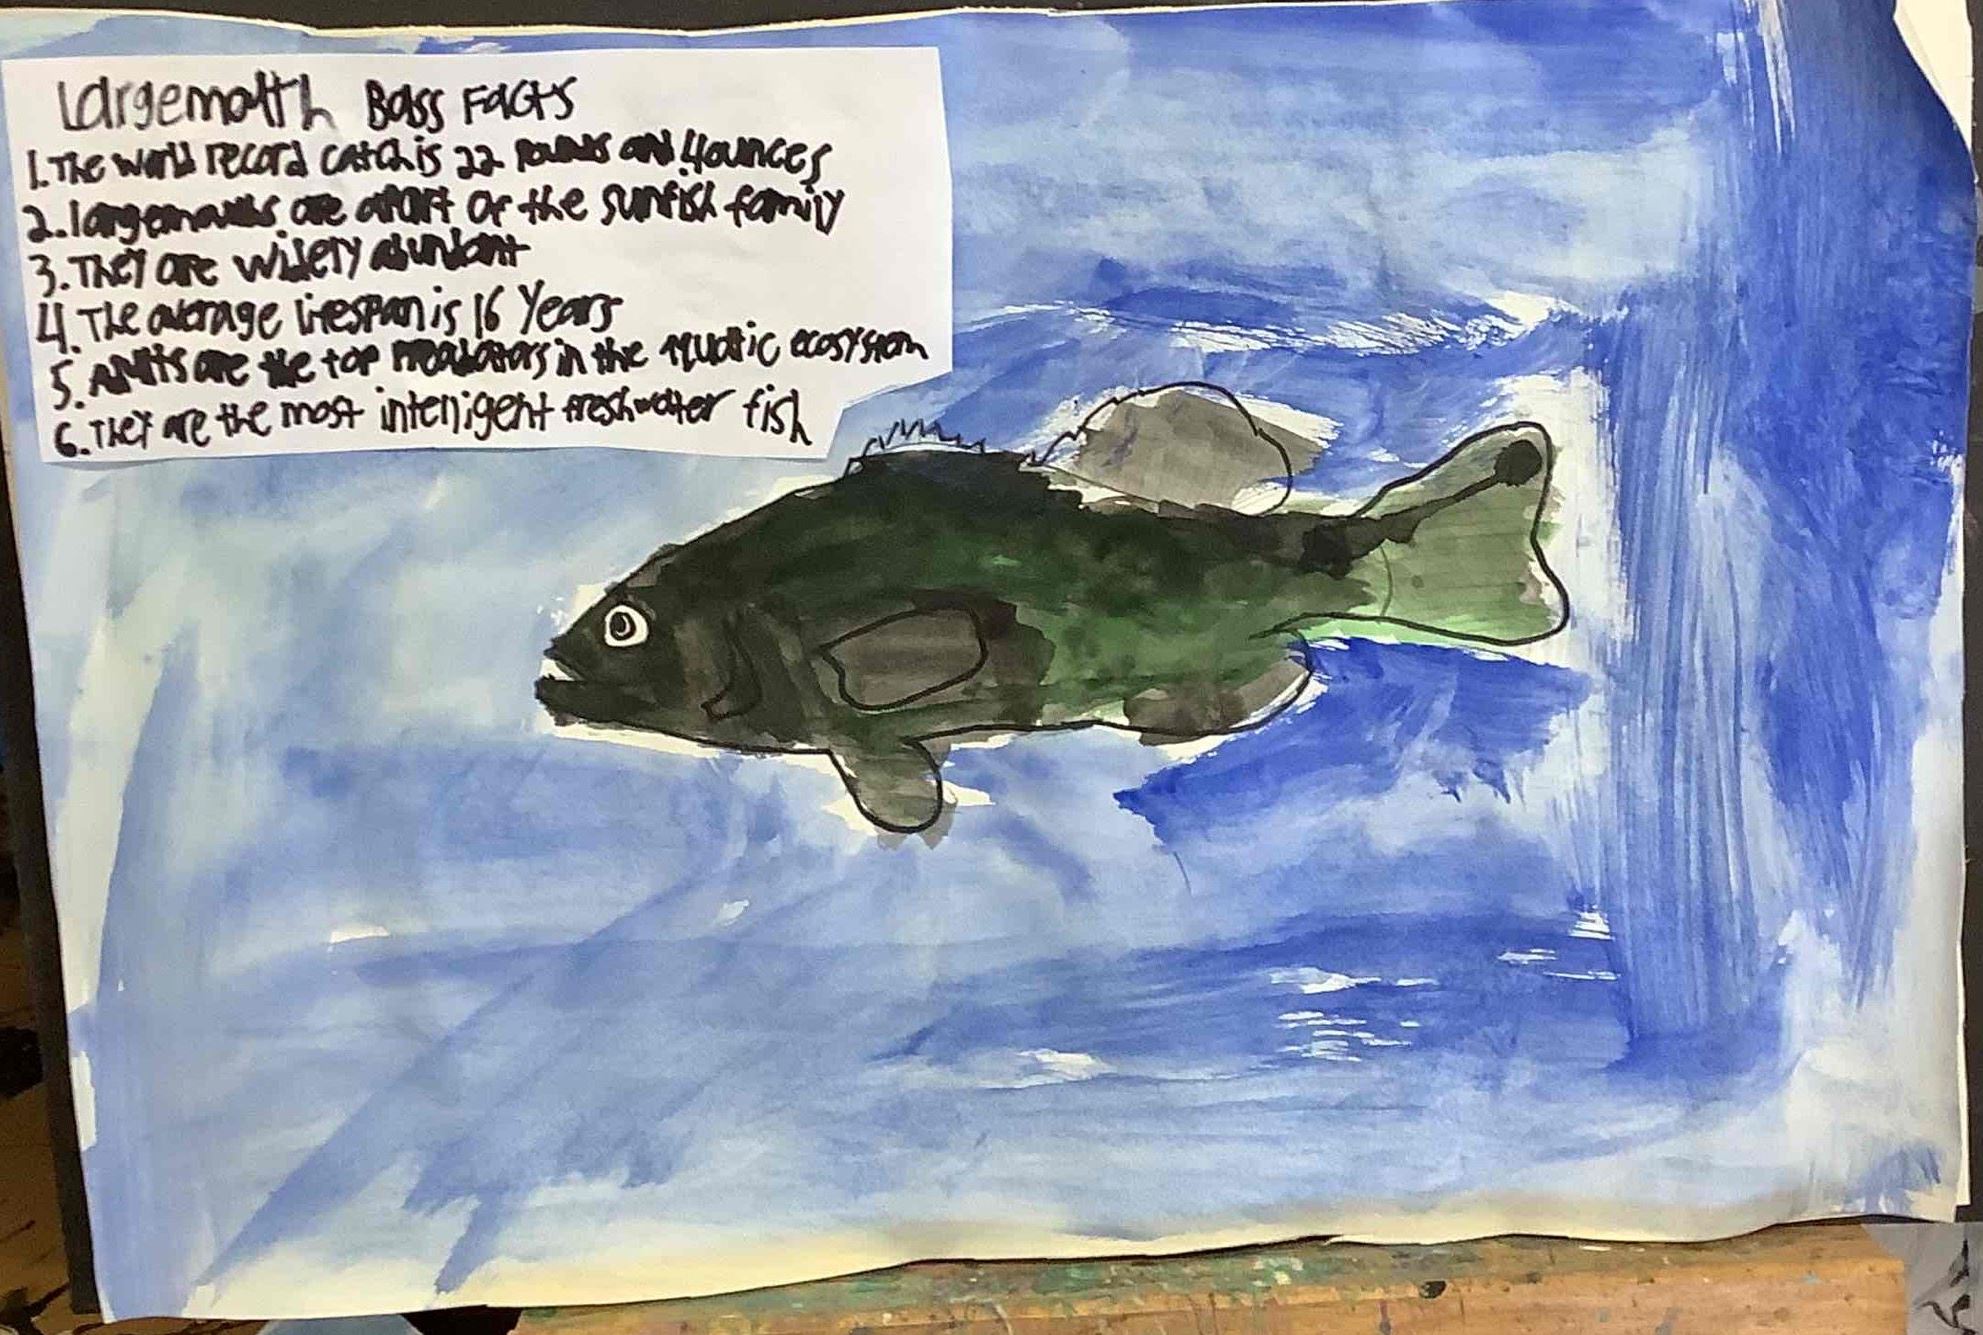 Largemoth Bass Facts
1. The world record catch is 22 pounds and 4 ounces
2. largemouths are apart of the sunfish family
3. They are widely abundant
4. The average lifespan is 16 Years
5. are the top predators in the aquatic ecosystem
6. They are the most intelligent freshwater fish